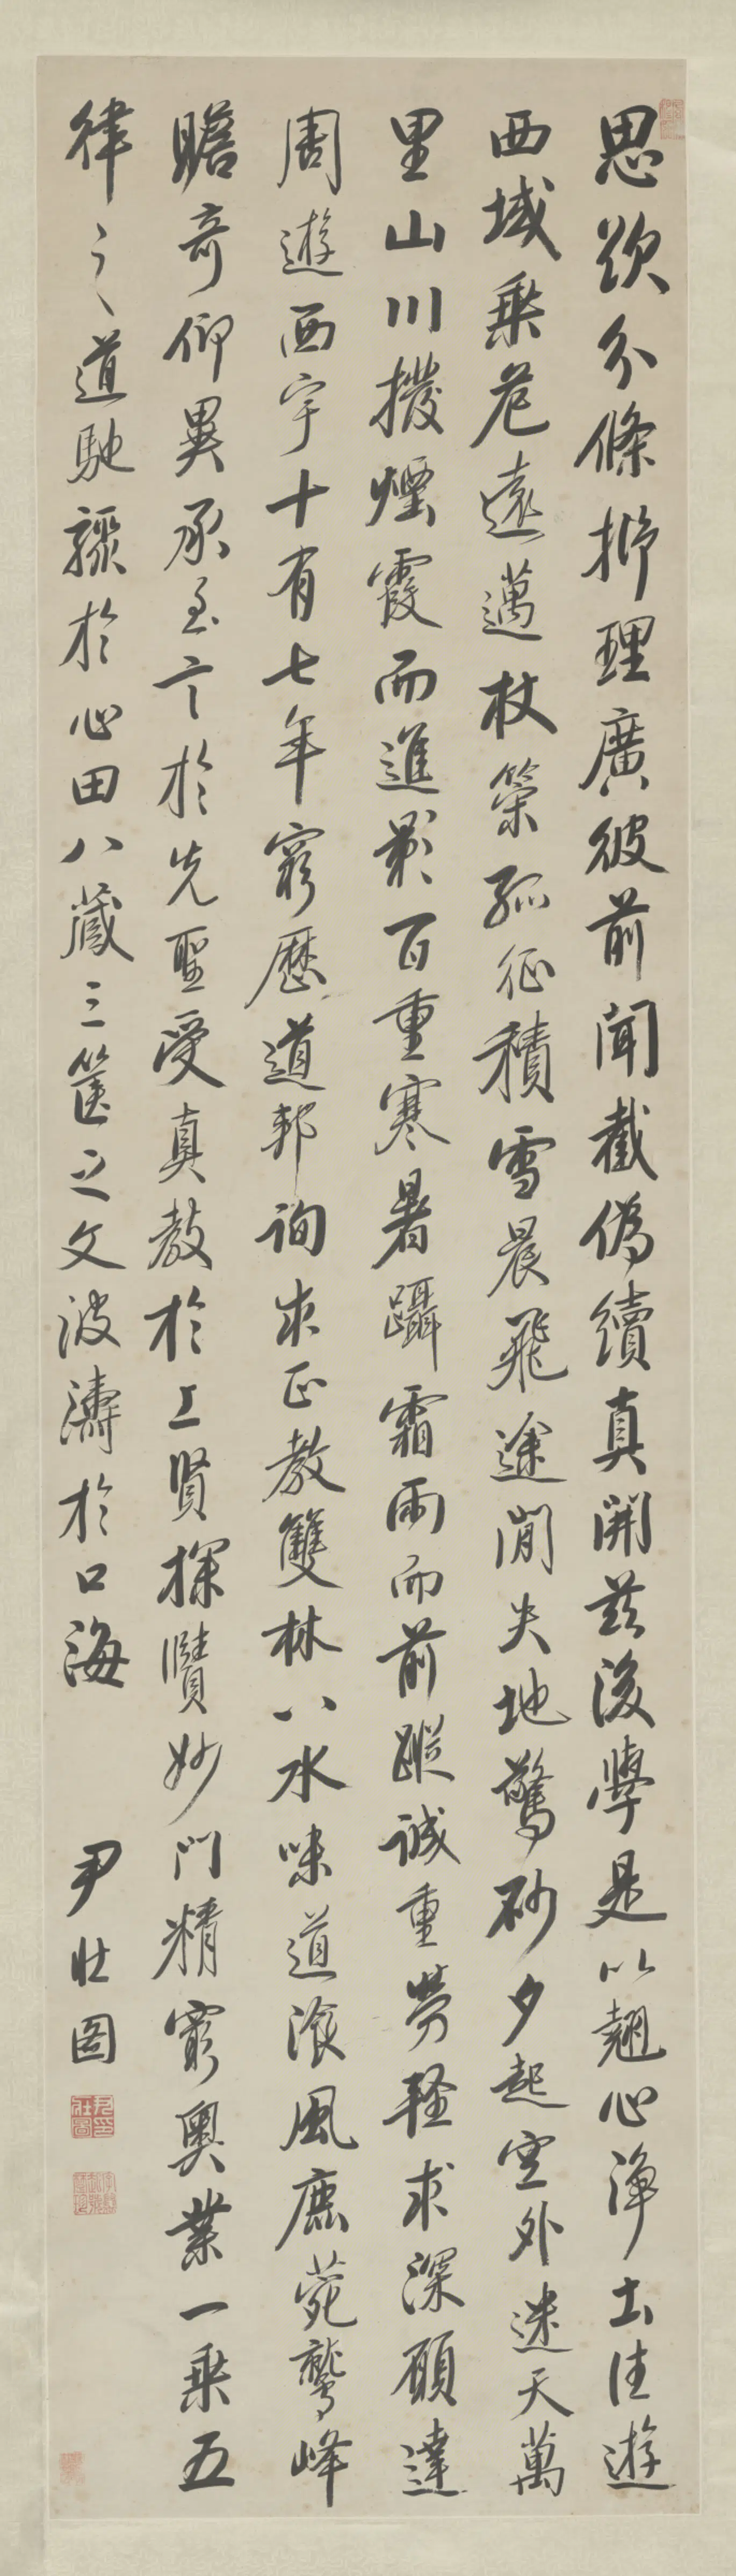 思欲分條析理廣彼前聞截偽續真開茲後學是以翹心淨土往遊
西域乘危遠邁杖策孤征積雪晨飛途間失地驚砂夕起空外迷天萬
里山川撥煙霞而進影百重寒暑躡霜雨而前蹤誠重勞輕求深願達
周遊西宇十有七年窮歷道邦詢求正教雙林八水味道飡風鹿菀鷲峰
瞻奇仰異承至言於先聖受真教於上賢探賾妙門精窮奧業一乘五
律之道馳驟於心田八藏三篋之文波濤於口海
尹壯圖